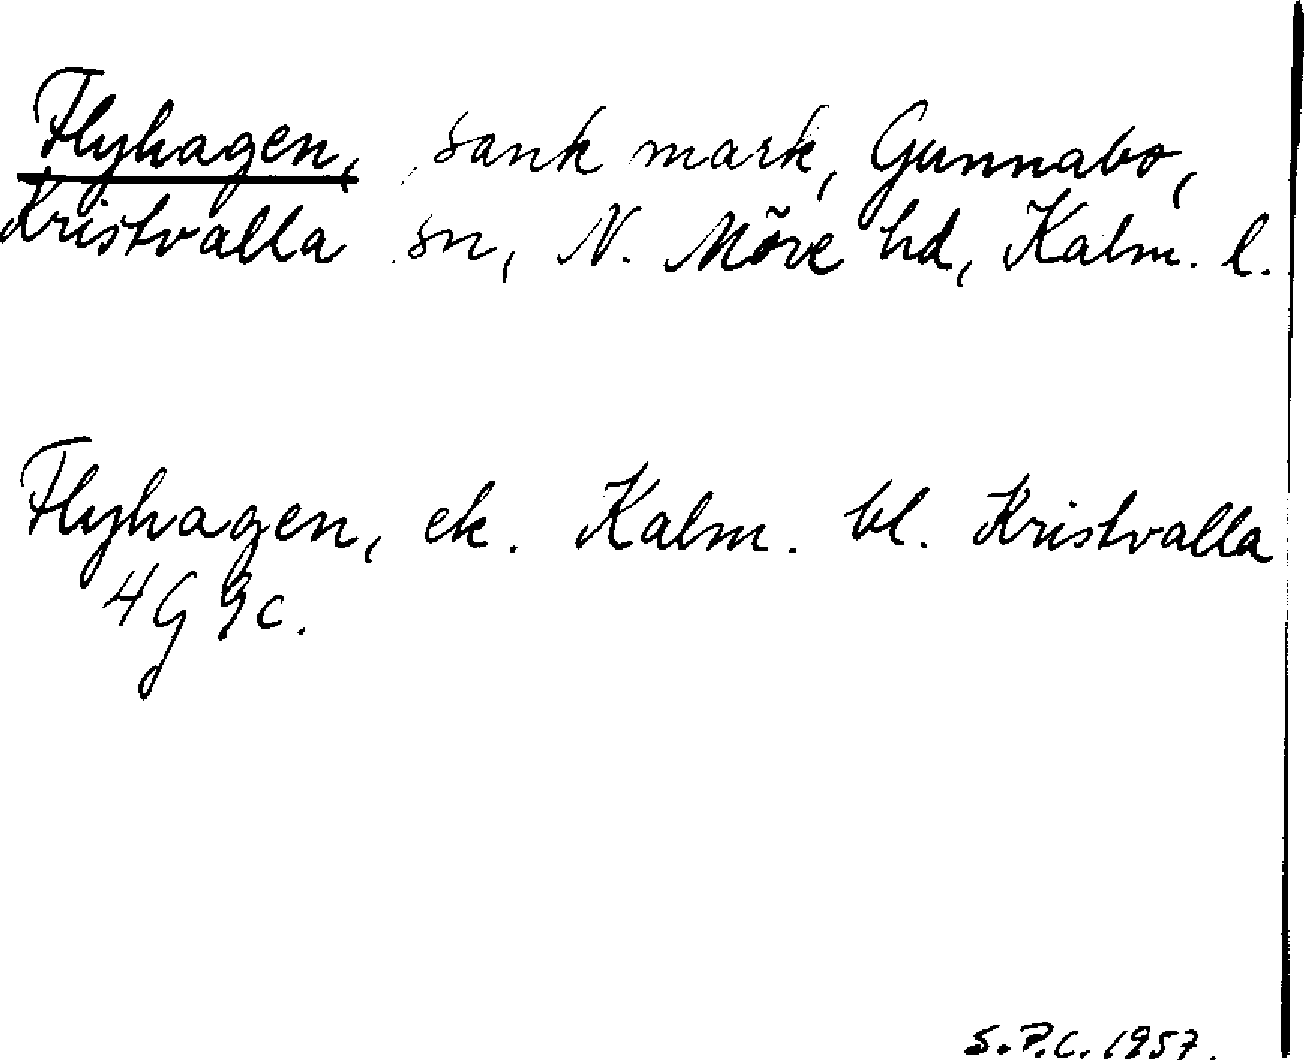 Flyhagen, sank mark, Gunnabo,
Kristvalla sn, N. Möre hd, Kalm. l.
Flyhagen, ek. Kalm. bl. Kristvalla
4G 9c.
S.P.C. 1957.